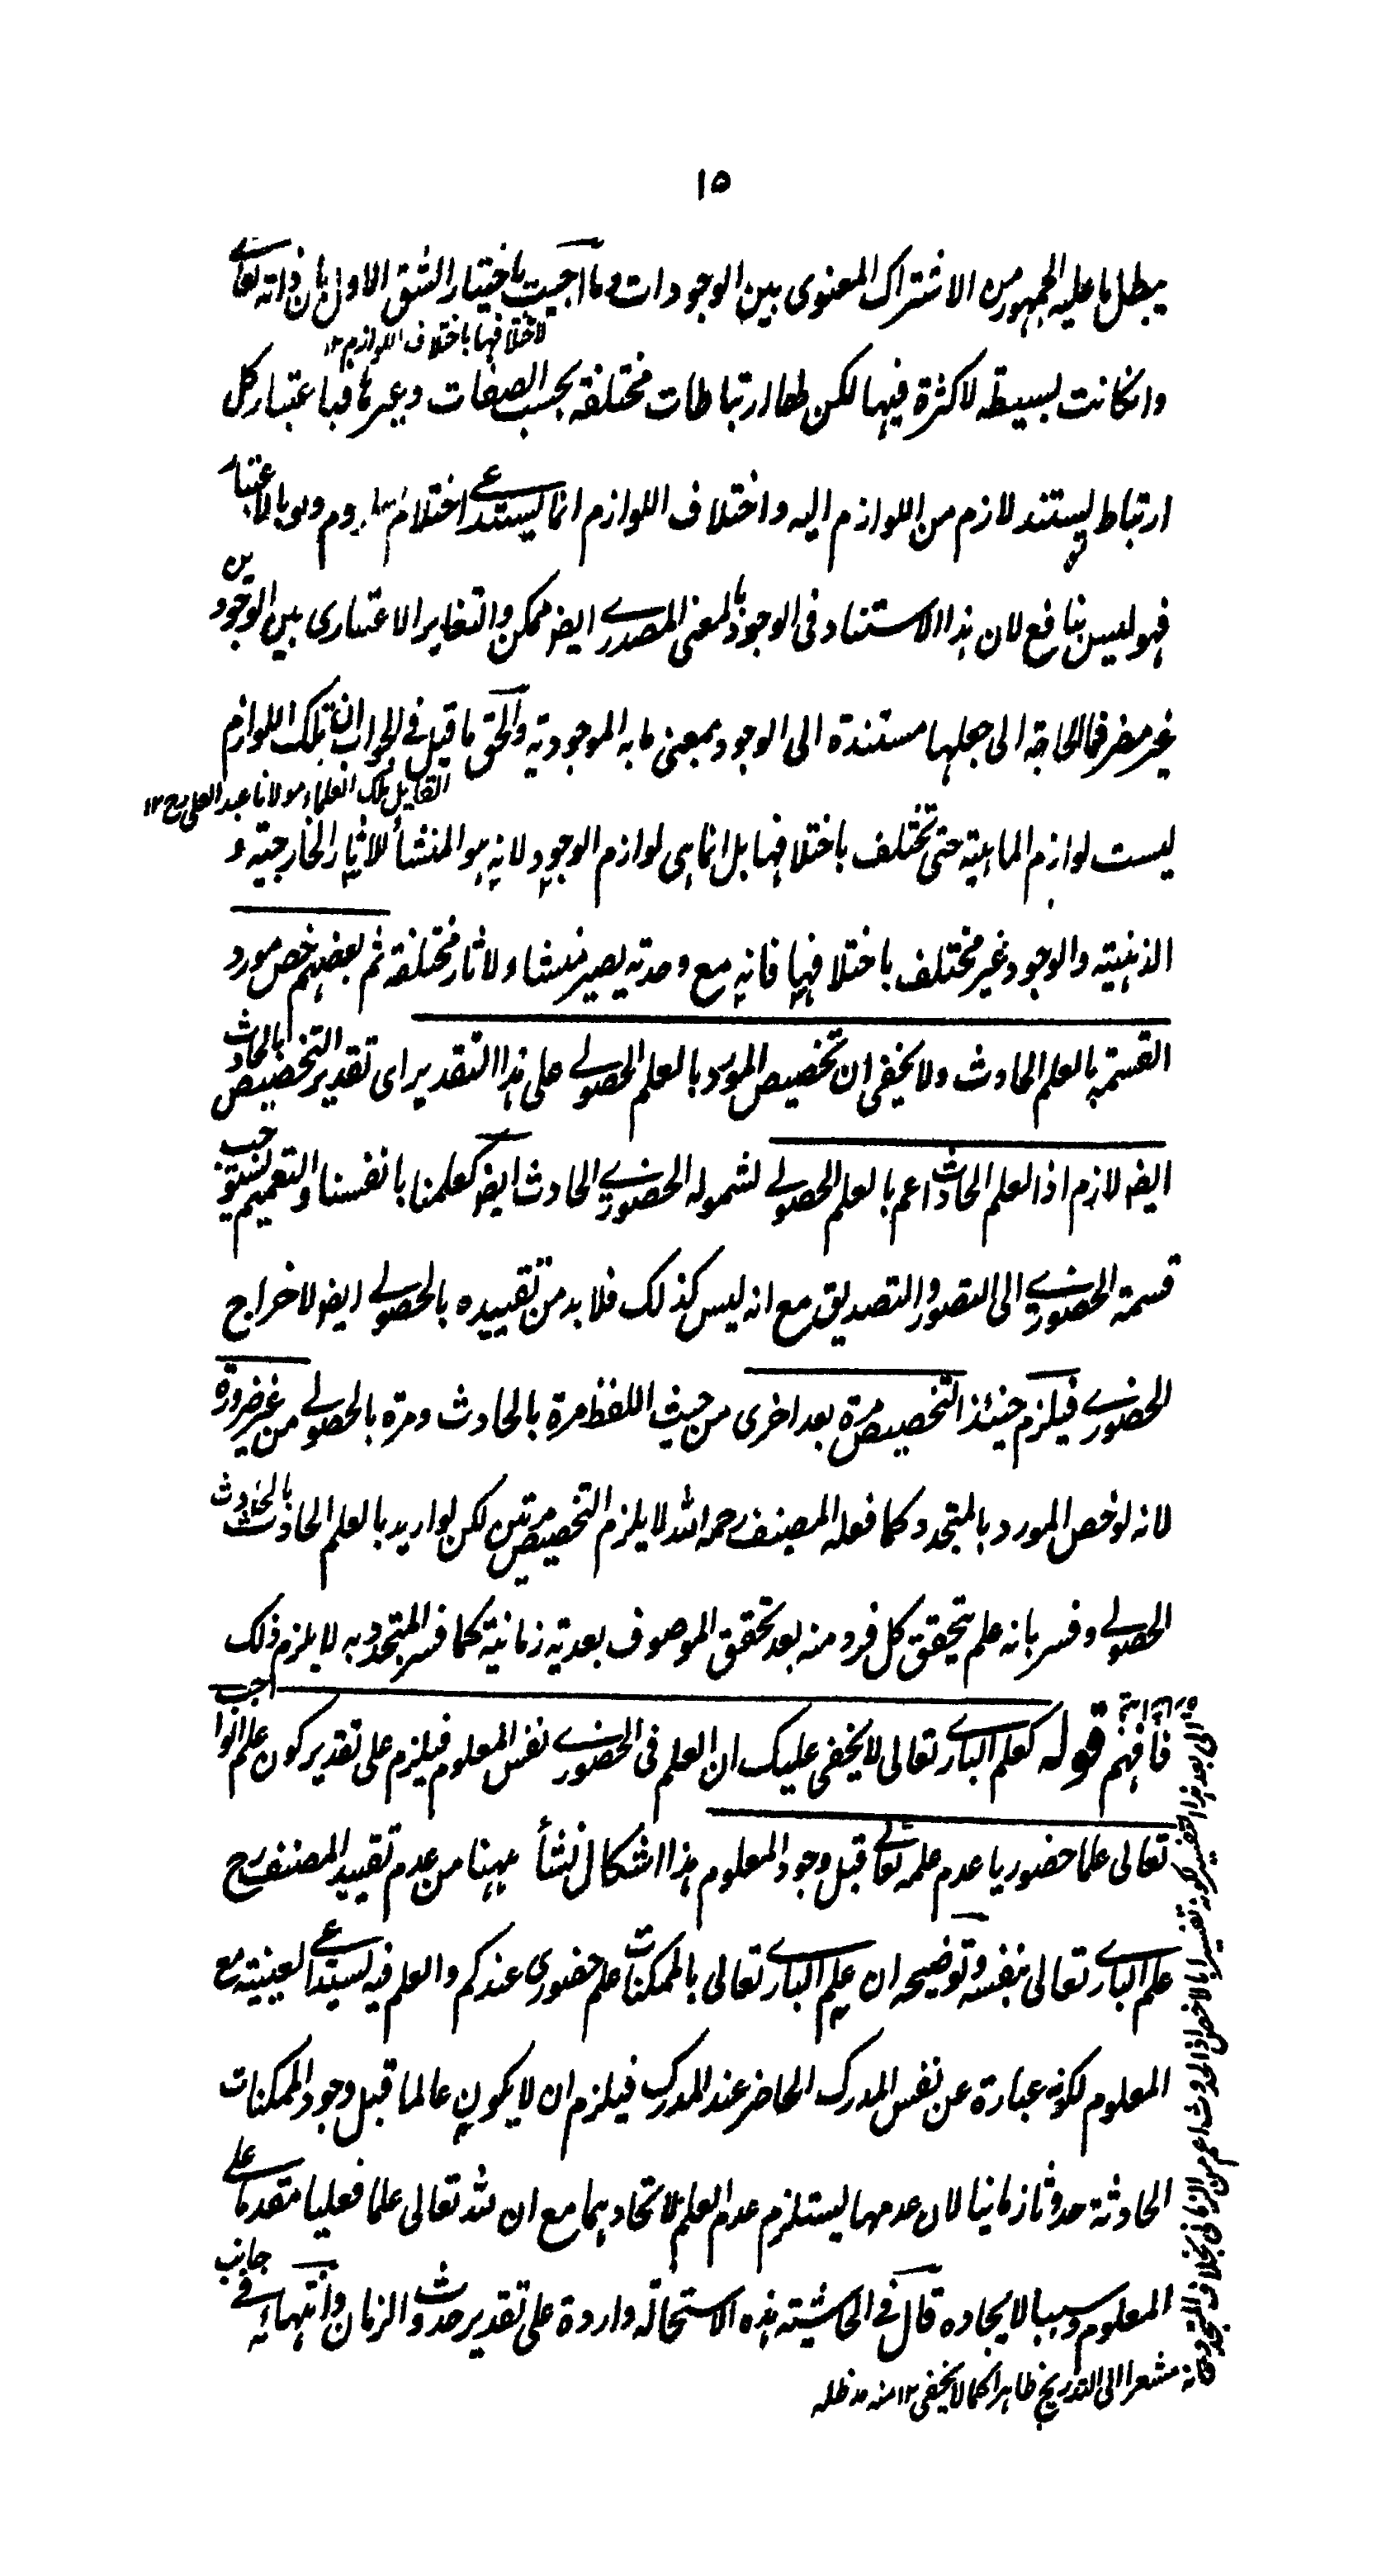 ١٥
يبطل ما عليه الجمهور من الاشتراك المعنوى بين الوجودات وما اجيب باختيار الشق الاول بان ذاته تعالے
لاختلافها باختلاف اللوازم ١٢
وانكانت بسيطة لاكثرة فيها لكن لها ارتباطات مختلفة بحسب الصفات وغيرها فباعتبار كل
ارتباط يستند لازم من اللوازم اليه واختلاف اللوازم انما يستدعے اختلاف الملزوم ولو بالاعتبار
فهو ليس بنافع لان هذا الاستناد فى الوجود بالمعنى المصدرے ايضا ممكن والتغاير الاعتبارى بين الوجودين
غير مضر فما الحاجة الى جعلها مستندة الى الوجود بمعنى ما به الموجودية والحق ما قيل فے الجواب ان تلك اللوازم
القايل ملك العلماء مولانا عبد العلى رح ١٢
ليست لوازم الماهية حتى تختلف باختلافها بل انما هى لوازم الوجود لانه هو المنشأ للاثار الخارجية و
الذهنية والوجود غير مختلف باختلافها فانه مع وحدته يصير منشاء لاثار مختلفة ثم بعضهم خص مورد
القسمة بالعلم الحادث ولا يخفى ان تخصيص المورد بالعلم الحصولے على هذا التقدير اى تقدير التخصيص بالحادث
ايضا لازم اذ العلم الحادث اعم بالعلم الحصولے لشموله الحضورے الحادث ايضا كعلمنا بانفسنا والتعميم يستوجب
قسمة الحضورے الى التصور والتصديق مع انه ليس كذلك فلا بد من تقييده بالحصولے ايضا لاخراج
الحضورے فيلزم حينئذ التخصيص مرة بعد اخرى من حيث اللفظ مرة بالحادث ومرة بالحصولے من غير ضرورة
لانه لو خص المورد بالمتجدد كما فعله المصنف رحمه الله لا يلزم التخصيص مرتين لكن لو اريد بالعلم الحادث بالحدوث
الحصولے وفسر بانه علم يتحقق كل فرد منه بعد تحقق الموصوف بعدية زمانية كما فسر المتجدد به لا يلزم ذلك
فافهم قوله كعلم البارے تعالى لا يخفى عليك ان العلم فى الحضورے نفس المعلوم فيلزم على تقدير كون علم الواجب
تعالى علما حضوريا عدم علمه تعالے قبل وجود المعلوم هذا اشكال نشأ ههنا من عدم تقييد المصنف رح
علم البارے تعالى بنفسه وتوضيحه ان علم البارے تعالى بالممكنات علم حضورى عندكم والعلم فيه يستدعے العينية مع
المعلوم لكونه عبارة عن نفس المدرك الحاضر عند المدرك فيلزم ان لا يكون عالما قبل وجود الممكنات
الحادثة حدوثا زمانيا لان عدمها يستلزم عدم العلم لاتحادهما مع ان لله تعالى علما فعليا مقدما علے
المعلوم وسببا لايجاده قال فے الحاشية هذه الاستحالة واردة على تقدير حدوث الزمان وانتهائه فے جانب
بعد هذا التفسير لكونه تفسيرا بالاخص اذ الحدوث اعم من الزمانى بخلاف المتجدد فانه
مشعر الى التدريج ظاهرا كما لا يخفى ١٢ منه مد ظله